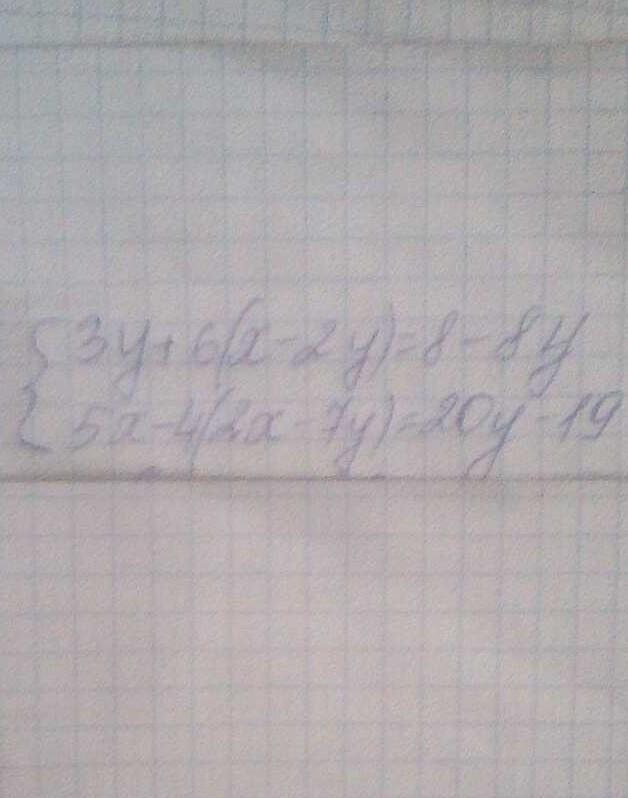 {3y+6(x-2y)=8-8y
5x-4(2x-7y)=20y-19